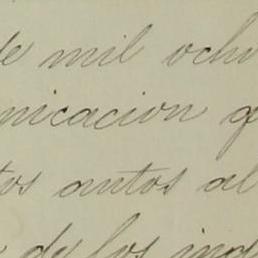 de mil ochi
nicacion q
tos autos al
de los ind